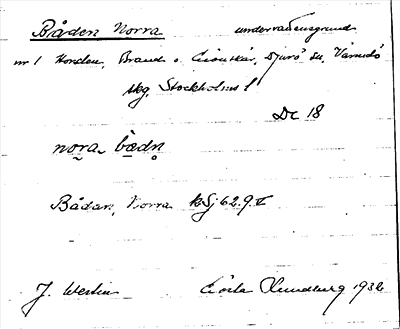 Båden Norra undervattensgrund
nr 1 Horsten, Brand o. skär, Djurö sn, Värmdö
skg, Stockholms l
Dc 18
nora bædn
Bådan, Norra kSj 62.9.V
J. Westin Gösta Lundberg 1932